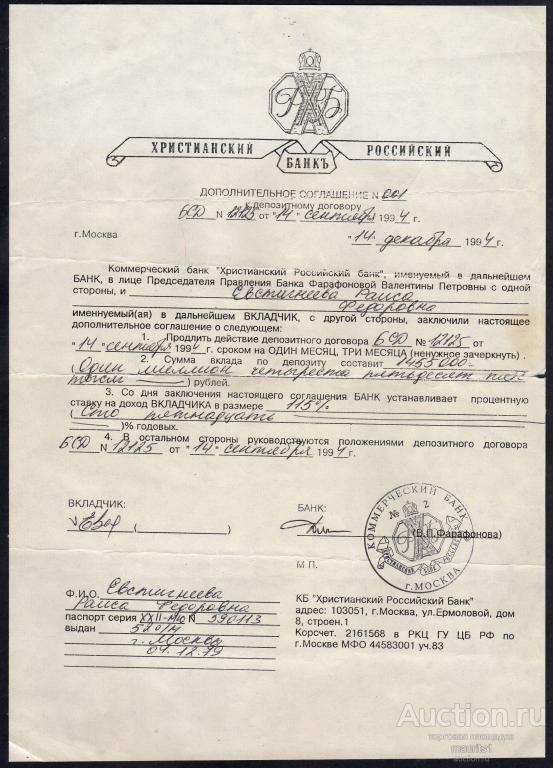 Р Х Б
ХРИСТИАНСКИЙ БАНКЪ РОССИЙСКИЙ
ДОПОЛНИТЕЛЬНОЕ СОГЛАШЕНИЕ N 001
к депозитному договору
БСД N 12125 от "14" сентября 1994 г.
г.Москва "14" декабря 1994 г.
Коммерческий банк "Христианский Российский банк", именуемый в дальнейшем
БАНК, в лице Председателя Правления Банка Фарафоновой Валентины Петровны с одной
стороны, и Евстигнеева Раиса
Федоровна
именуемный(ая) в дальнейшем ВКЛАДЧИК, с другой стороны, заключили настоящее
дополнительное соглашение о следующем:
1. Продлить действие депозитного договора БСД N 12125 от
"14" сентября 1994 г. сроком на ОДИН МЕСЯЦ, ТРИ МЕСЯЦА (ненужное зачеркнуть) .
2. Сумма вклада по депозиту составит 1455000-
(Один миллион четыреста пятьдесят пять
тысяч ) рублей.
3. Со дня заключения настоящего соглашения БАНК устанавливает процентную
ставку на доход ВКЛАДЧИКА в размере 115%
(Сто пятнадцать
)% годовых.
4. В остальном стороны руководствуются положениями депозитного договора
БСД N 12125 от "14" сентября 1994 г.
ВКЛАДЧИК: БАНК:
( ) (В.П.Фарафонова)
М П.
КОММЕРЧЕСКИЙ БАНК
№ 2
ХРИСТИАНСКИЙ БАНКЪ РОССИЙСКИЙ
г. МОСКВА
Ф.И.О. Евстигнеева
Раиса Федоровна
паспорт серия XXII-МЮ N 590113
выдан 52 о/м
г. Москвы
04.12.79
КБ "Христианский Российский Банк"
адрес: 103051, г.Москва, ул.Ермоловой, дом
8, строен.1
Корсчет. 2161568 в РКЦ ГУ ЦБ РФ по
г.Москве МФО 44583001 уч.83
Auction.ru
торговая площадка
maurits1
auction.ru